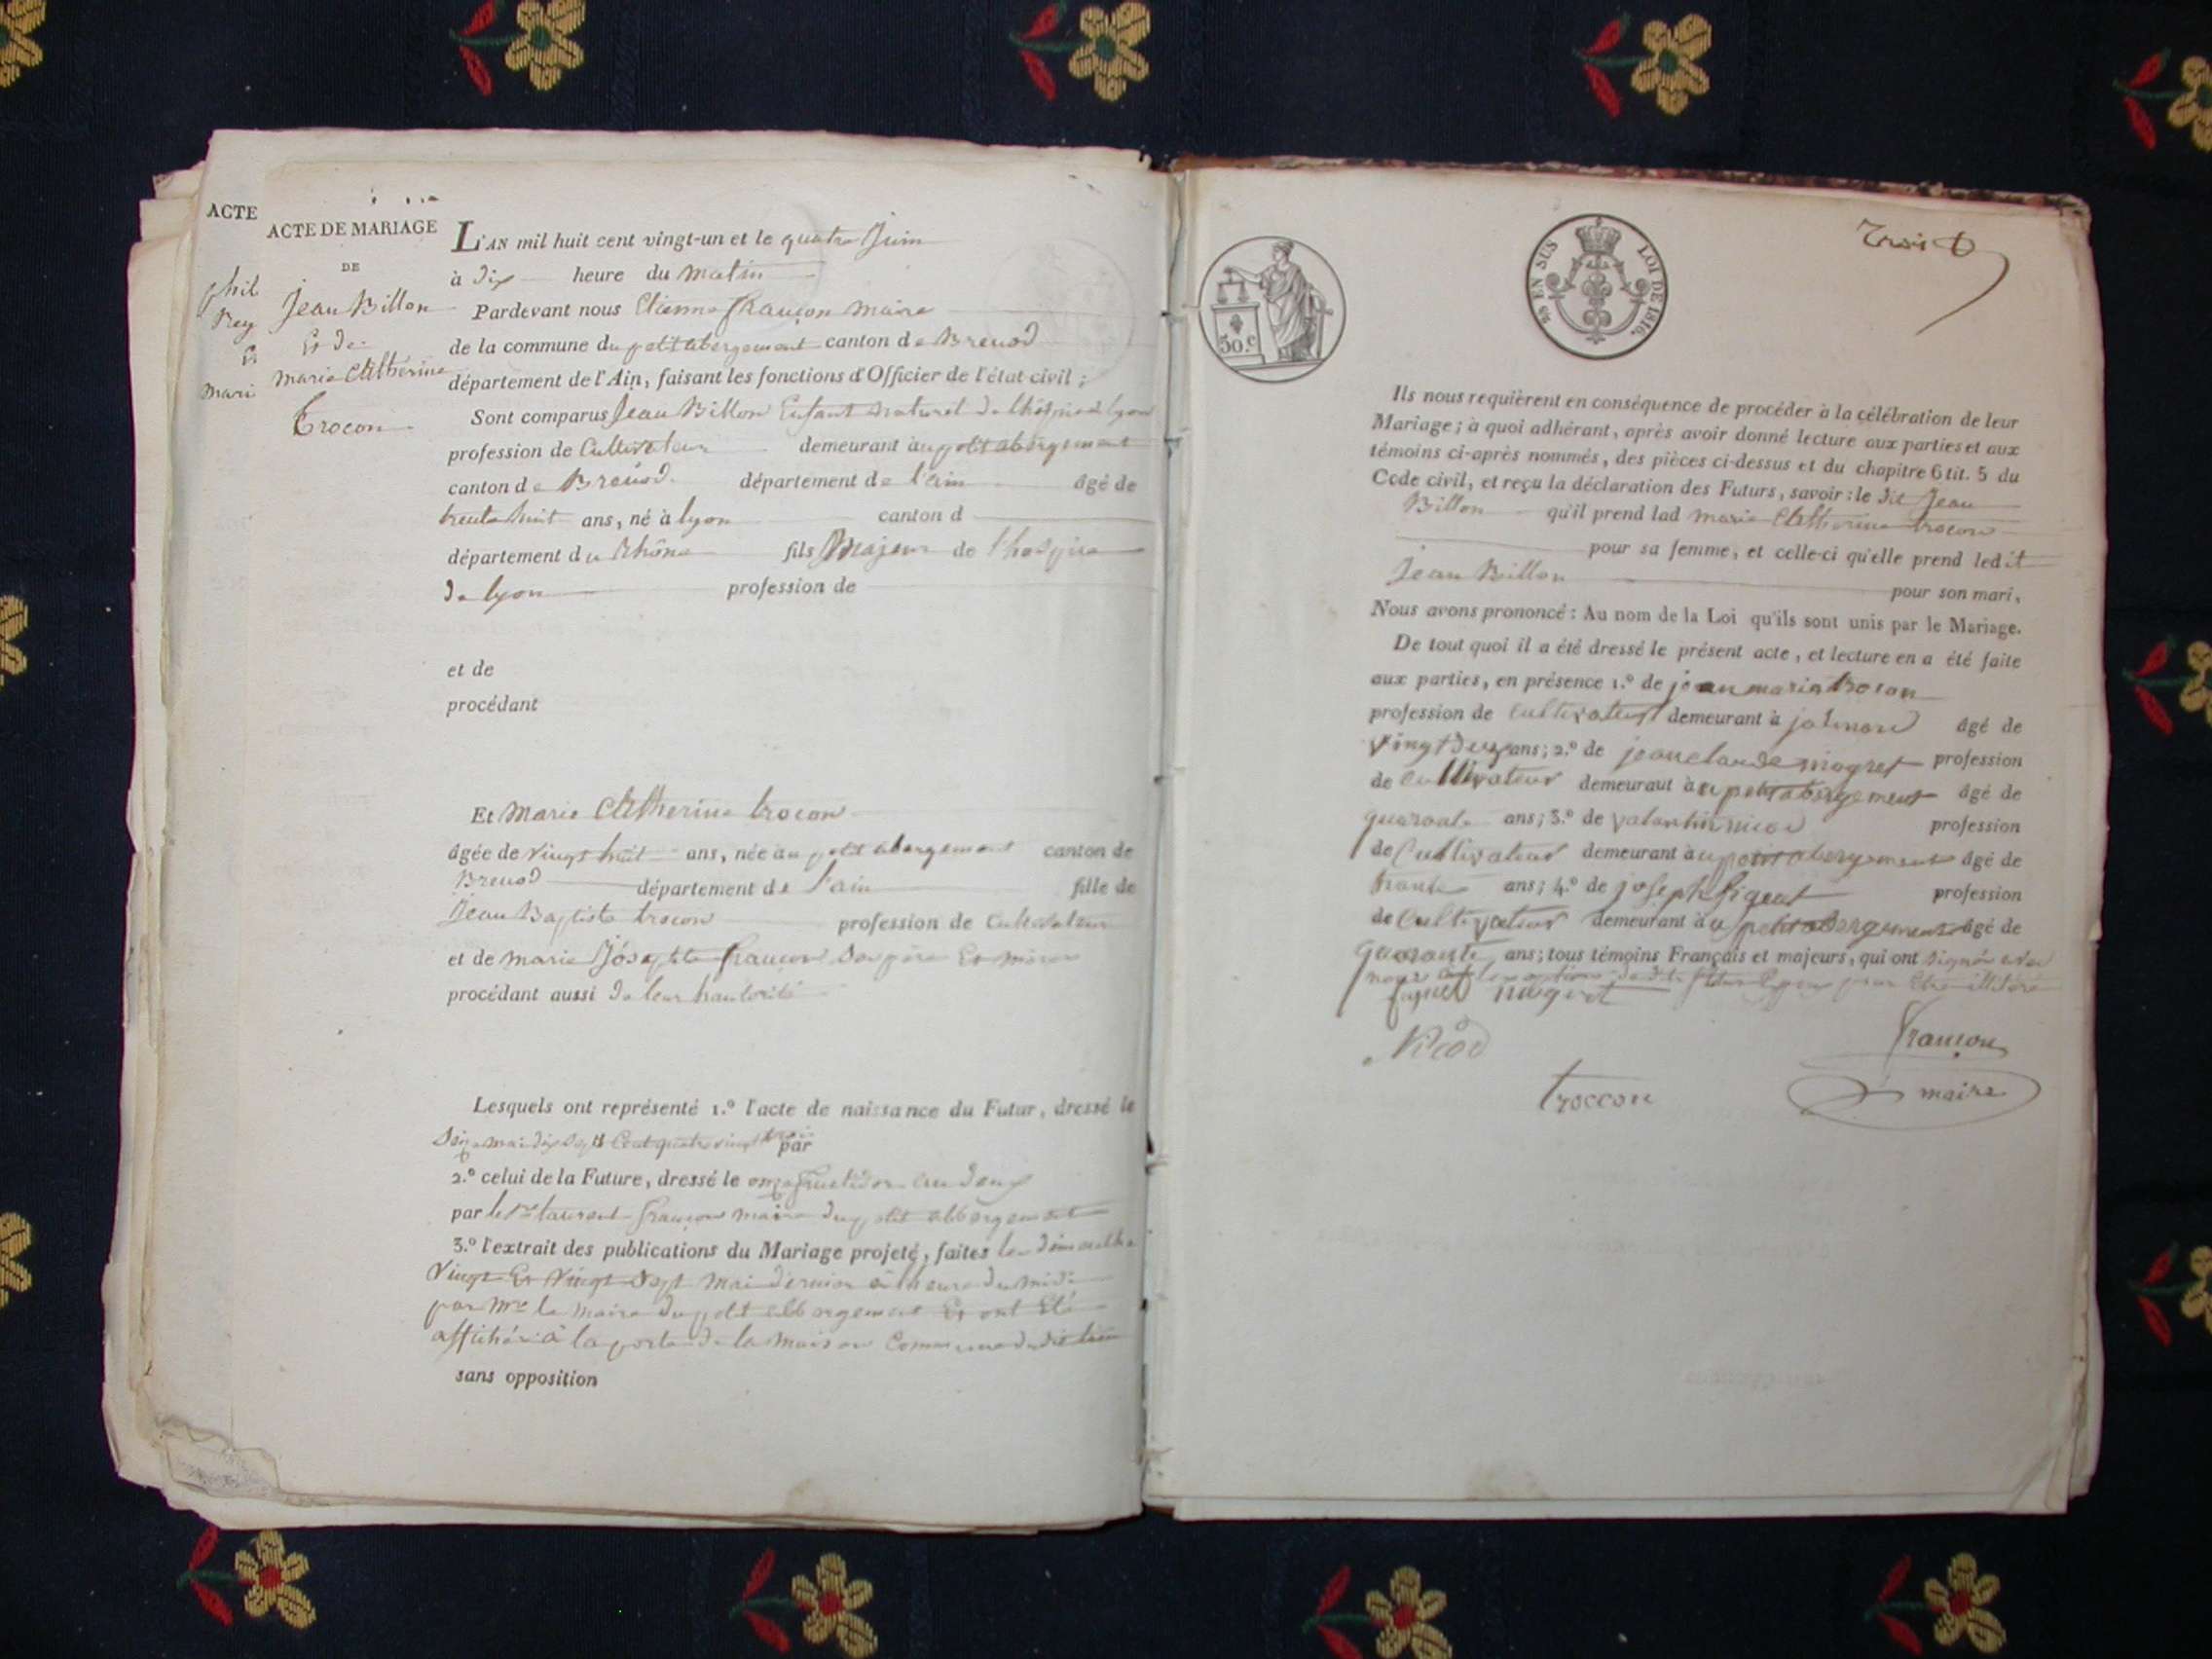 ACTE
phil
Rey
Et
mari
ACTE DE MARIAGE
DE
Jean Billon
Et de
marie Catherine
Trocon
L'AN mil huit cent vingt-un et le quatre Juin
à dix heure du matin
Pardevant nous Etienne françon maire
de la commune du petit abergement canton de Brenod
département de l'Ain, faisant les fonctions d'Officier de l'état civil ;
Sont comparus Jean Billon Enfant naturel de l'hospice de lyon
profession de Cultivateur demeurant au petit abergement
canton de Brenod département de l'ain âgé de
trente huit ans, né à lyon canton d
département du Rhône fils Majeur de l'hospice
de lyon profession de
et de
procédant
Et Marie Catherine trocon
âgée de vingt huit ans, née au petit abergement canton de
Brenod département de l'ain fille de
Jean Baptiste trocon profession de Cultivateur
et de marie Josephte françon Ses père Et mère
procédant aussi de leur hautorité
Lesquels ont représenté 1.º l'acte de naissance du Futur, dressé le
mai dix Sept Cent quatre vingt trois par
2.º celui de la Future, dressé le onze fructidor an deux
par le Sr laurent françon maire du petit abbergement
3.º l'extrait des publications du Mariage projeté, faites les dimanches
vingt Et vingt Sept mai dernier à l'heure du midi
par Mr le maire du petit abbergement Et ont Eté
affichés à la porte de la maison Commune dudit lieu
sans opposition
trois
30.c
EN SUS
LOI DE 1816.
Ils nous requièrent en conséquence de procéder à la célébration de leur
Mariage; à quoi adhérant, après avoir donné lecture aux parties et aux
témoins ci-après nommés, des pièces ci-dessus et du chapitre 6 tit. 5 du
Code civil, et reçu la déclaration des Futurs, savoir : le dit Jean
Billon qu'il prend lad marie Catherine trocon
pour sa femme, et celle-ci qu'elle prend ledit
Jean Billon pour son mari,
Nous avons prononcé : Au nom de la Loi qu'ils sont unis par le Mariage.
De tout quoi il a été dressé le présent acte, et lecture en a été faite
aux parties, en présence 1.º de jean marie trocon
profession de Cultivateur demeurant à jalinard âgé de
vingt deux ans; 2.º de jean claude magret profession
de Cultivateur demeurant à au petit abergement âgé de
quarante ans; 3.º de valantin nicod profession
de Cultivateur demeurant à au petit abergement âgé de
trante ans; 4.º de joseph profession
de Cultivateur demeurant à au petit abergement âgé de
quarante ans; tous témoins Français et majeurs, qui ont signés avec
nous pour Etre illitéré
magret
Nicod
Françon
Troccon
maire